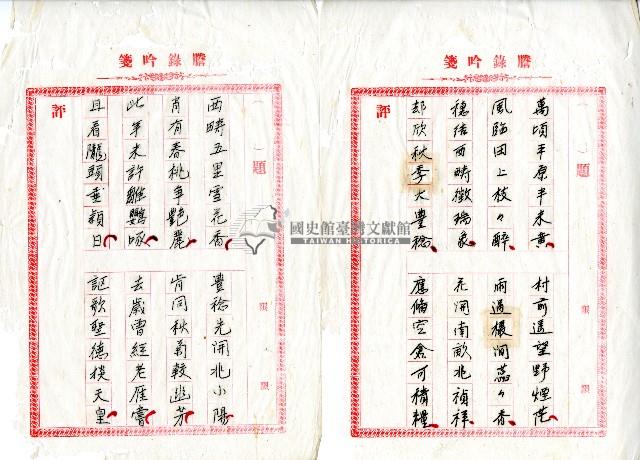 謄錄吟箋
題
限
限
萬頃平原半未黃
村前遙望野煙茫
風臨田上枝々醉
雨過間蕊々香
穗結西疇徵瑞象
花開南畝兆禎祥
却欣秋季大豐稔
應備空倉可積糧
評
謄錄吟箋
題
限
限
西疇五里雪花香
豐稔先開兆小陽
肖有春桃爭艷麗
肯同秋菊較幽芳
此年未許雛鸚啄
去歲曾經老雁嘗
且看隴頭垂穎日
謳歌聖德天皇
評
國史館臺灣文獻館
TAIWAN HISTORICA